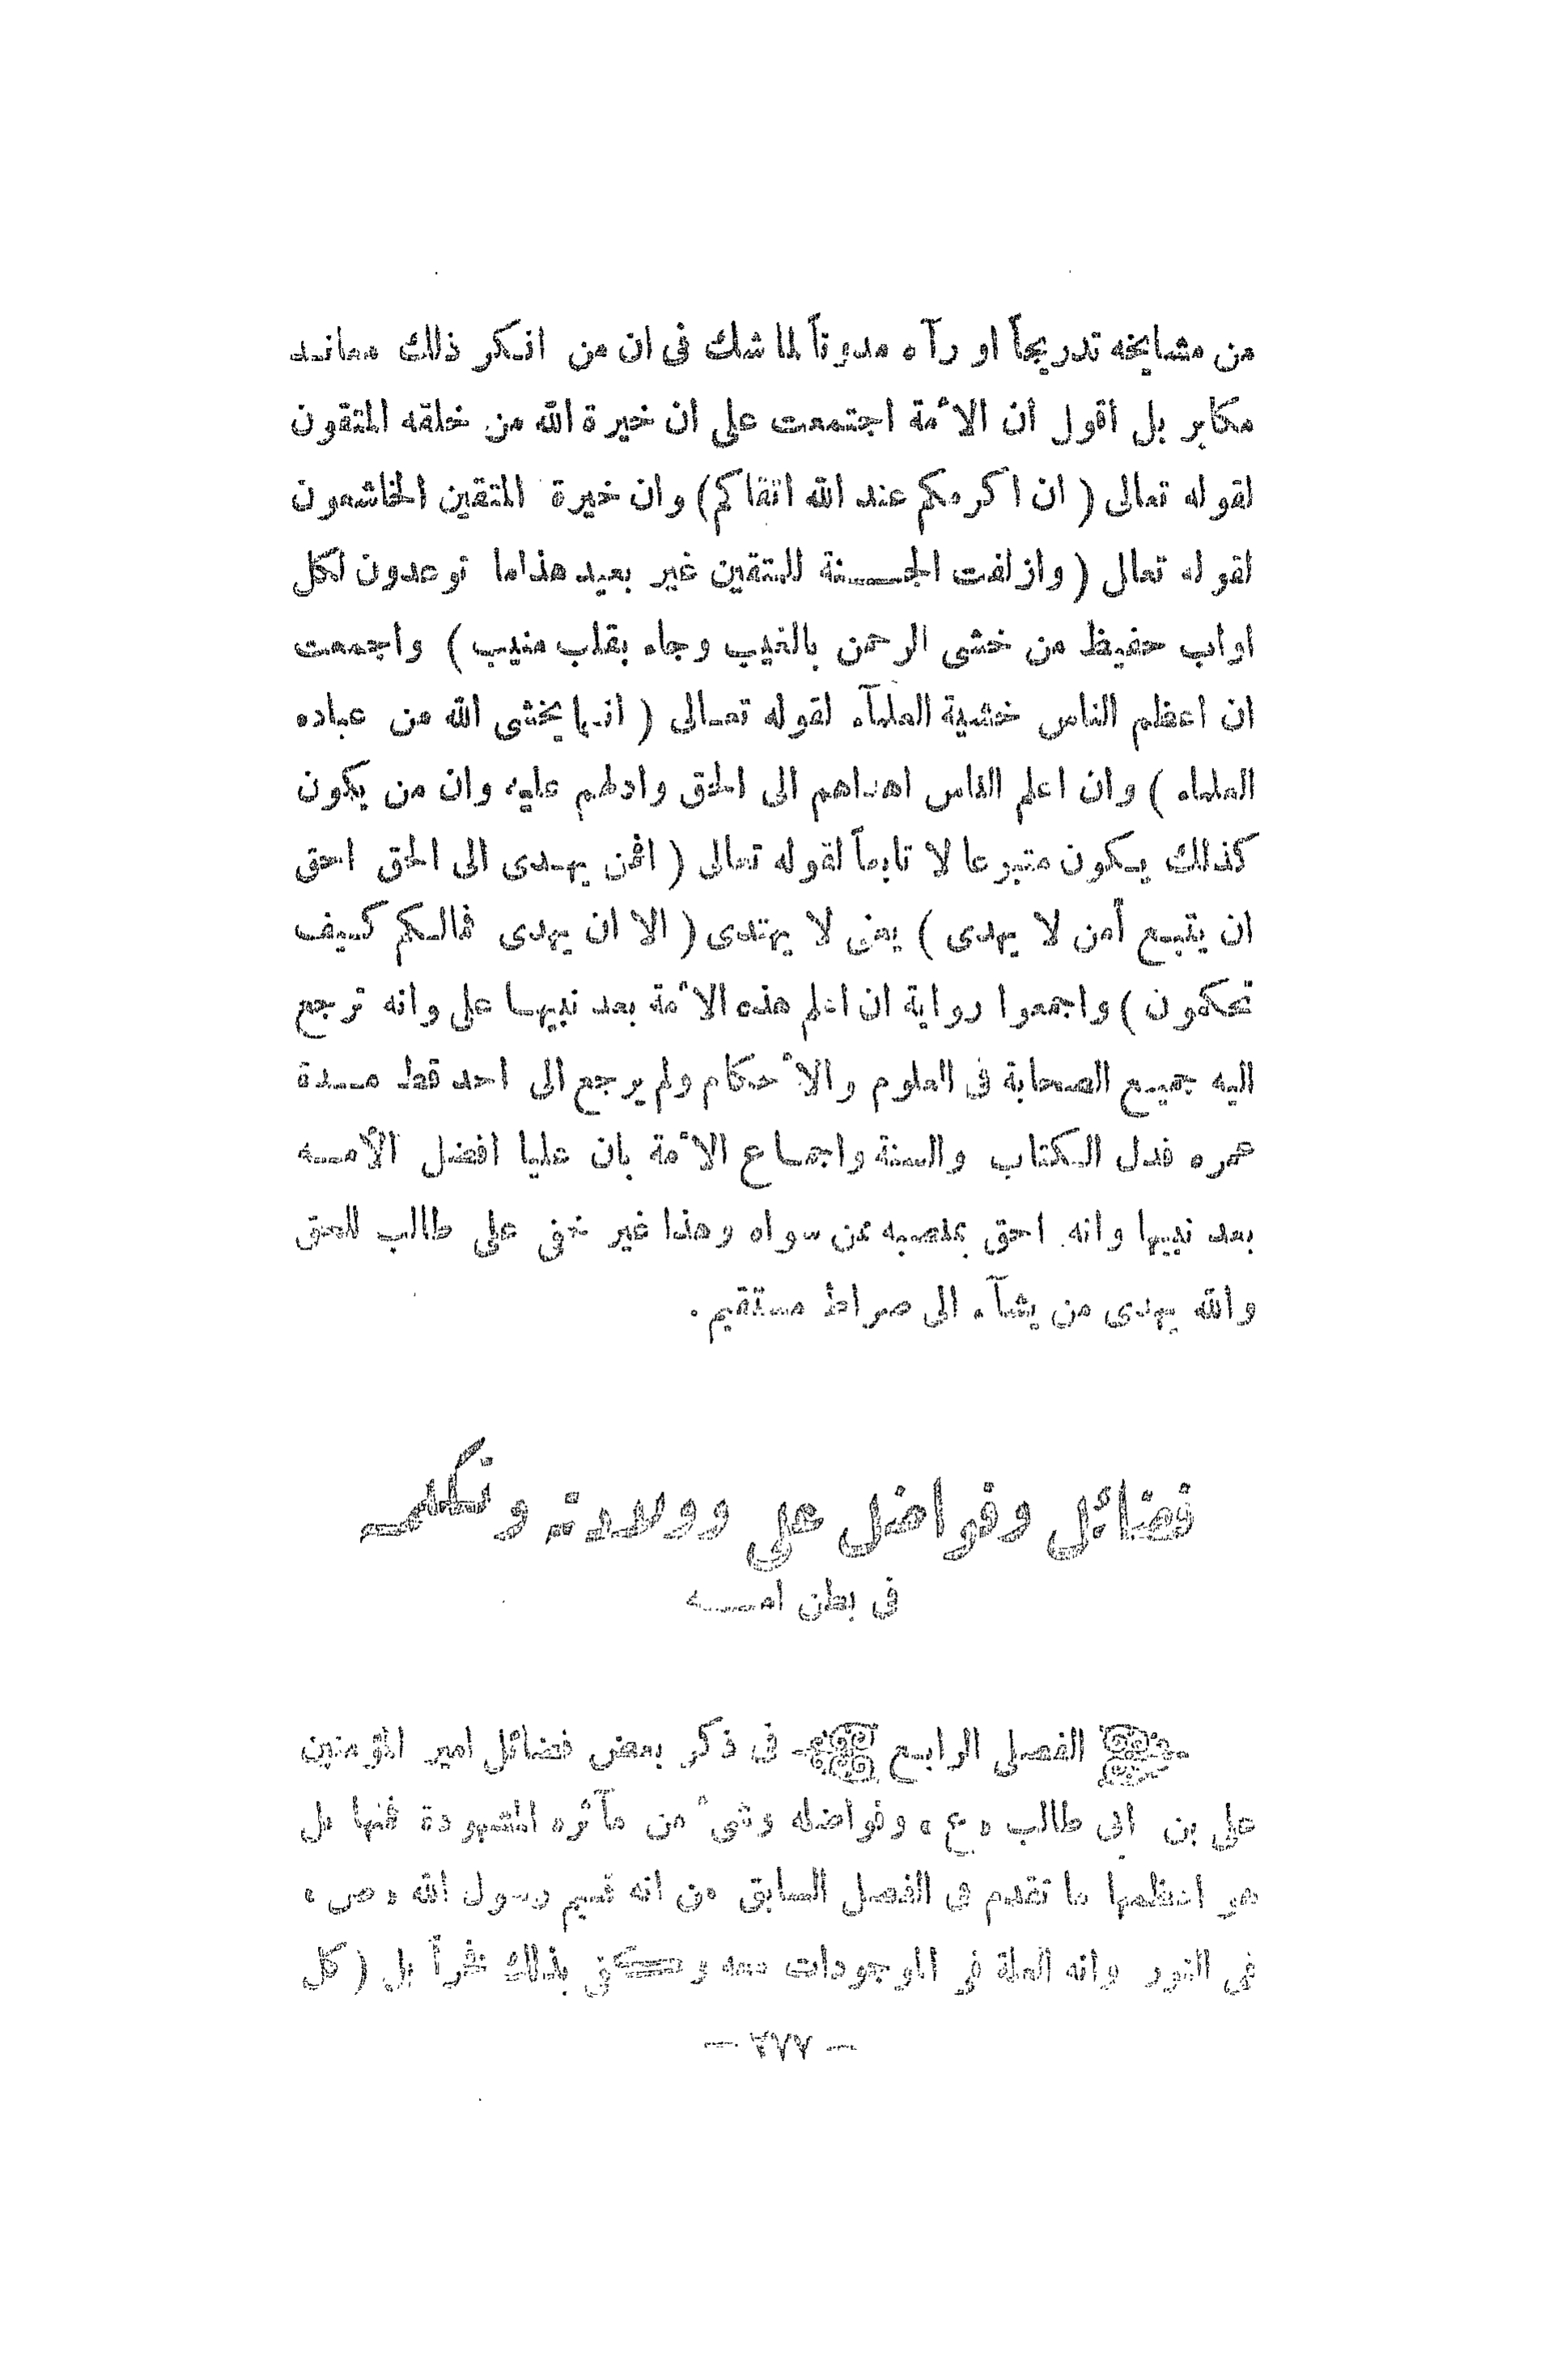 من مشايخه تدريجاً او رآه مدوناً لما شك فى ان من انكر ذلك معاند
مكابر بل أقول أن الأمة اجتمعت على ان خيرة الله من خلقه المتقون
لقوله تعالى ( ان اكرمكم عند الله اتقاكم) وان خيرة المتقين الخاشعون
لقوله تعالى ( وازلفت الجنة للمتقين غير بعيد هذا ما توعدون لكل
اواب حفيظ من خشى الرحمن بالغيب وجاء بقلب منيب ) واجمعت
ان اعظم الناس خشية العلمآء لقوله تعالى ( انما يخشى الله من عباده
العلماء ) وان اعلم الناس اهداهم الى الحق وادلهم عليه وان من يكون
كذلك يكون متبوعا لا تابعاً لقوله تعالى ( افمن يهدى الى الحق احق
ان يتبع أمن لا يهدى ) يعنى لا يهتدى ( الا ان يهدى فمالكم كيف
تحكمون ) واجمعوا رواية ان اعلم هذه الأمة بعد نبيها على وانه ترجع
اليه جميع الصحابة فى العلوم والأحكام ولم يرجع الى احد قط مدة
عمره فدل الكتاب والسنة واجماع الأمة بان عليا افضل الأمه
بعد نبيها وانه احق بمنصبه عن سواه وهذا غير خفى على طالب للحق
والله يهدى من يشآء الى صراط مستقيم .
فضائل وفواضل على وولادته وتكلمه
فى بطن امه
الفصل الرابع فى ذكر بعض فضائل امير المؤمنين
على بن ابى طالب « ع » وفواضله وشىء من مآثره المشهودة فمنها بل
هو اعظمها ما تقدم فى الفصل السابق من انه قسيم رسول الله « ص »
فى النور وانه العلة فى الموجودات معه وكفى بذلك فخراً بل ( كل
— ٢٧٧ —